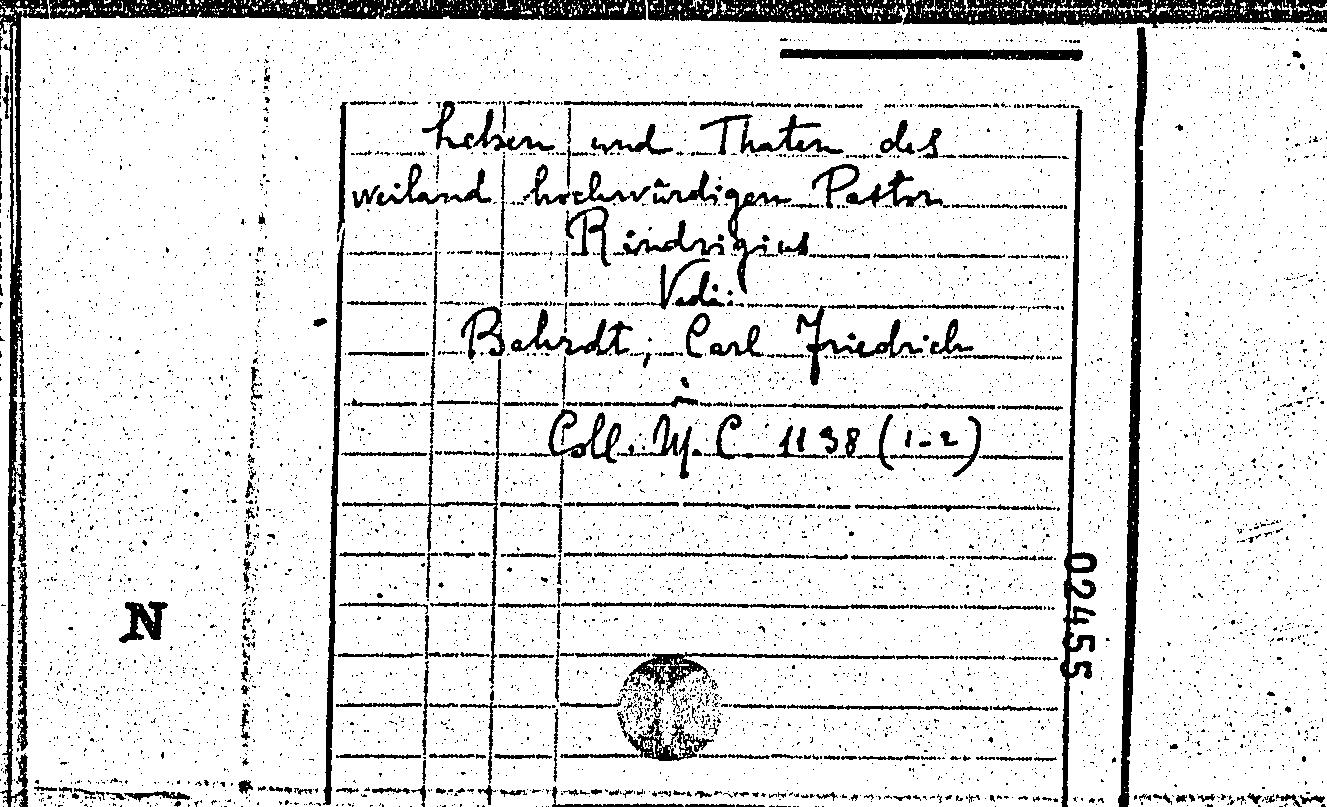 Leben und Thaten des
weiland hochwürdigen Pastor
Rindvigius
Vedi:
Bahrdt, Carl Friedrich
in
Coll. M. C. 1138 (1-2)
02455
N